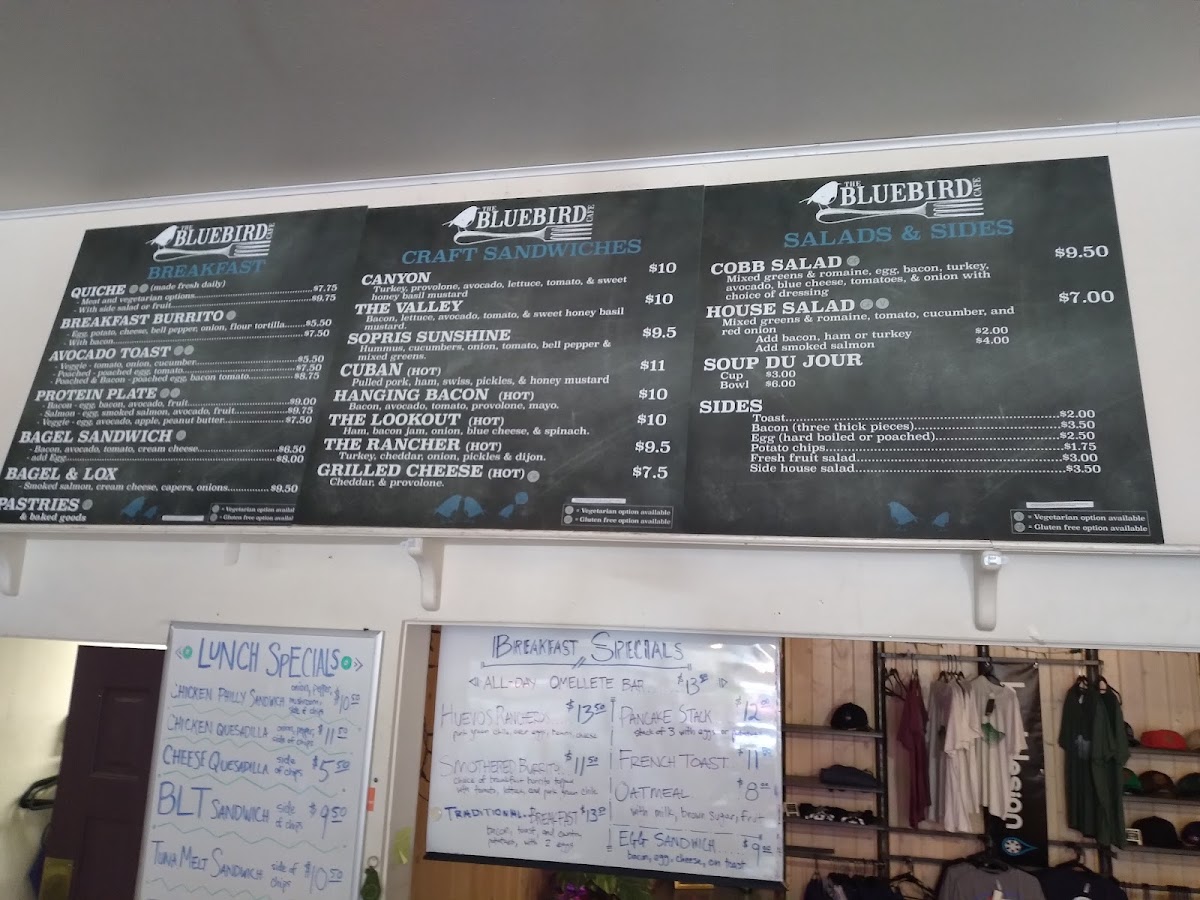 THE
BLUEBIRD
CAFE
BREAKFAST
QUICHE (made fresh daily)
- Meat and vegetarian options...$7.75
- With side salad or fruit...$9.75
BREAKFAST BURRITO
- Egg, potato, cheese, bell pepper, onion, flour tortilla...$5.50
- With bacon...$7.50
AVOCADO TOAST
- Veggie - tomato, onion, cucumber...$5.50
- Poached - poached egg, tomato...$7.50
- Poached & Bacon - poached egg, bacon tomato...$8.75
PROTEIN PLATE
- Bacon - egg, bacon, avocado, fruit...$9.00
- Salmon - egg, smoked salmon, avocado, fruit...$9.75
- Veggie - egg, avocado, apple, peanut butter...$7.50
BAGEL SANDWICH
- Bacon, avocado, tomato, cream cheese...$8.50
- add Egg...$8.00
BAGEL & LOX
- Smoked salmon, cream cheese, capers, onions...$9.50
PASTRIES
& baked goods
= Vegetarian option availabl
= Gluten free option availabl
THE
BLUEBIRD
CAFE
CRAFT SANDWICHES
CANYON $10
Turkey, provolone, avocado, lettuce, tomato, & sweet
honey basil mustard
THE VALLEY $10
Bacon, lettuce, avocado, tomato, & sweet honey basil
mustard.
SOPRIS SUNSHINE $9.5
Hummus, cucumbers, onion, tomato, bell pepper &
mixed greens.
CUBAN (HOT) $11
Pulled pork, ham, swiss, pickles, & honey mustard
HANGING BACON (HOT) $10
Bacon, avocado, tomato, provolone, mayo.
THE LOOKOUT (HOT) $10
Ham, bacon jam, onion, blue cheese, & spinach.
THE RANCHER (HOT) $9.5
Turkey, cheddar, onion, pickles & dijon.
GRILLED CHEESE (HOT) $7.5
Cheddar, & provolone.
= Vegetarian option available
= Gluten free option available
THE
BLUEBIRD
CAFE
SALADS & SIDES
COBB SALAD $9.50
Mixed greens & romaine, egg, bacon, turkey,
avocado, blue cheese, tomatoes, & onion with
choice of dressing
HOUSE SALAD $7.00
Mixed greens & romaine, tomato, cucumber, and
red onion
Add bacon, ham or turkey $2.00
Add smoked salmon $4.00
SOUP DU JOUR
Cup $3.00
Bowl $6.00
SIDES
Toast...$2.00
Bacon (three thick pieces)...$3.50
Egg (hard boiled or poached)...$2.50
Potato chips...$1.75
Fresh fruit salad...$3.00
Side house salad...$3.50
= Vegetarian option available
= Gluten free option available
LUNCH SPECIALS
CHICKEN PHILLY SANDWICH onion, pepper, mushroom, side of chips $10.50
CHICKEN QUESADILLA onion, pepper, side of chips $11.50
CHEESE QUESADILLA side of chips $5.50
BLT SANDWICH side of chips $9.50
TUNA MELT SANDWICH side of chips $10.50
BREAKFAST SPECIALS
ALL-DAY OMELLETE BAR... $13.50
HUEVOS RANCHEROS $13.50
SMOTHERED BURRITO $11.50
choice of breakfast burrito topped
with tomato, lettuce, and pork green chile
TRADITIONAL BREAKFAST $13.50
bacon, toast, and
potatoes, with 2 eggs
PANCAKE STACK $12.00
stack of 3 with eggs
FRENCH TOAST $11
OATMEAL $8.00
with milk, brown sugar, fruit
EGG SANDWICH $9.50
bacon, egg, cheese, on toast